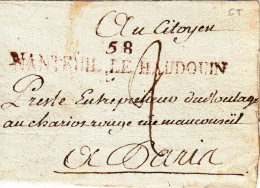 ST
Au Citoyen
58
NANTEUIL-LE HAUDOUIN
2
Preste Entrepreneur du Roulage
au chariot rouge rue mauconseil
A Paris